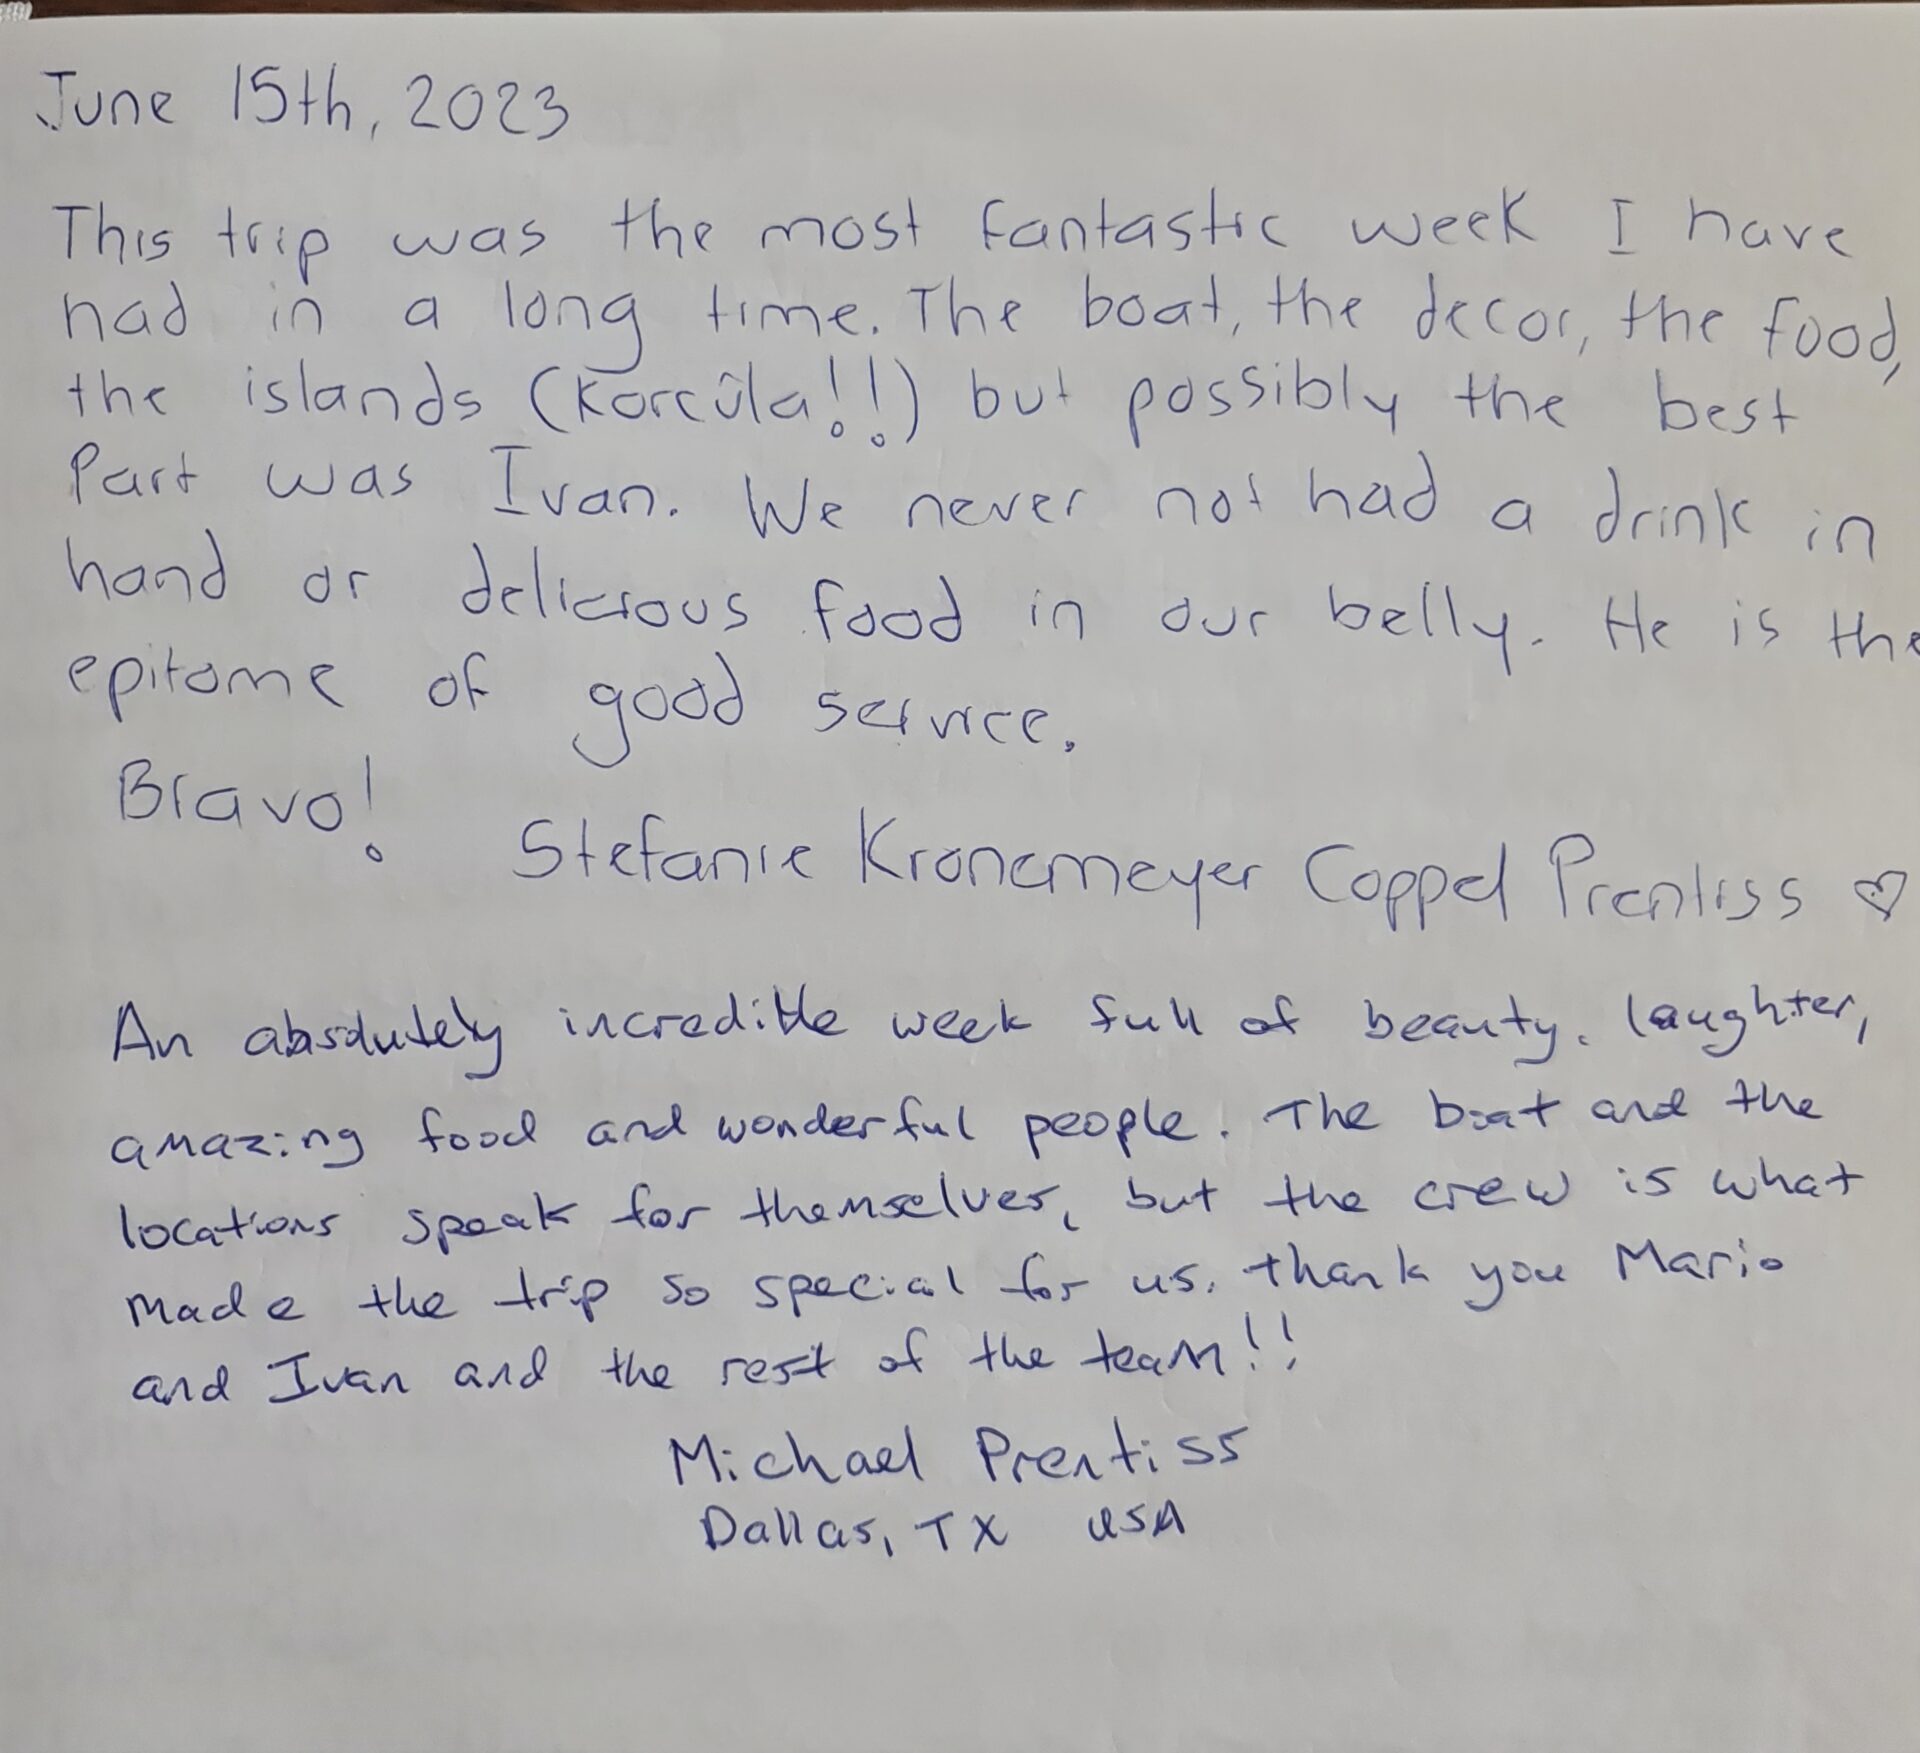 June 15th, 2023
This trip was the most fantastic week I have
had in a long time. The boat, the decor, the food,
the islands (Korcûla!!) but possibly the best
Part was Ivan. We never not had a drink in
hand or delicious food in our belly. He is the
epitome of good service.
Bravo!
Stefanie Kronemeyer Coppel Prentiss ♡
An absolutely incredible week full of beauty, laughter,
amazing food and wonderful people. The boat and the
locations speak for themselves, but the crew is what
made the trip so special for us. Thank you Mario
and Ivan and the rest of the team!!
Michael Prentiss
Dallas, TX USA